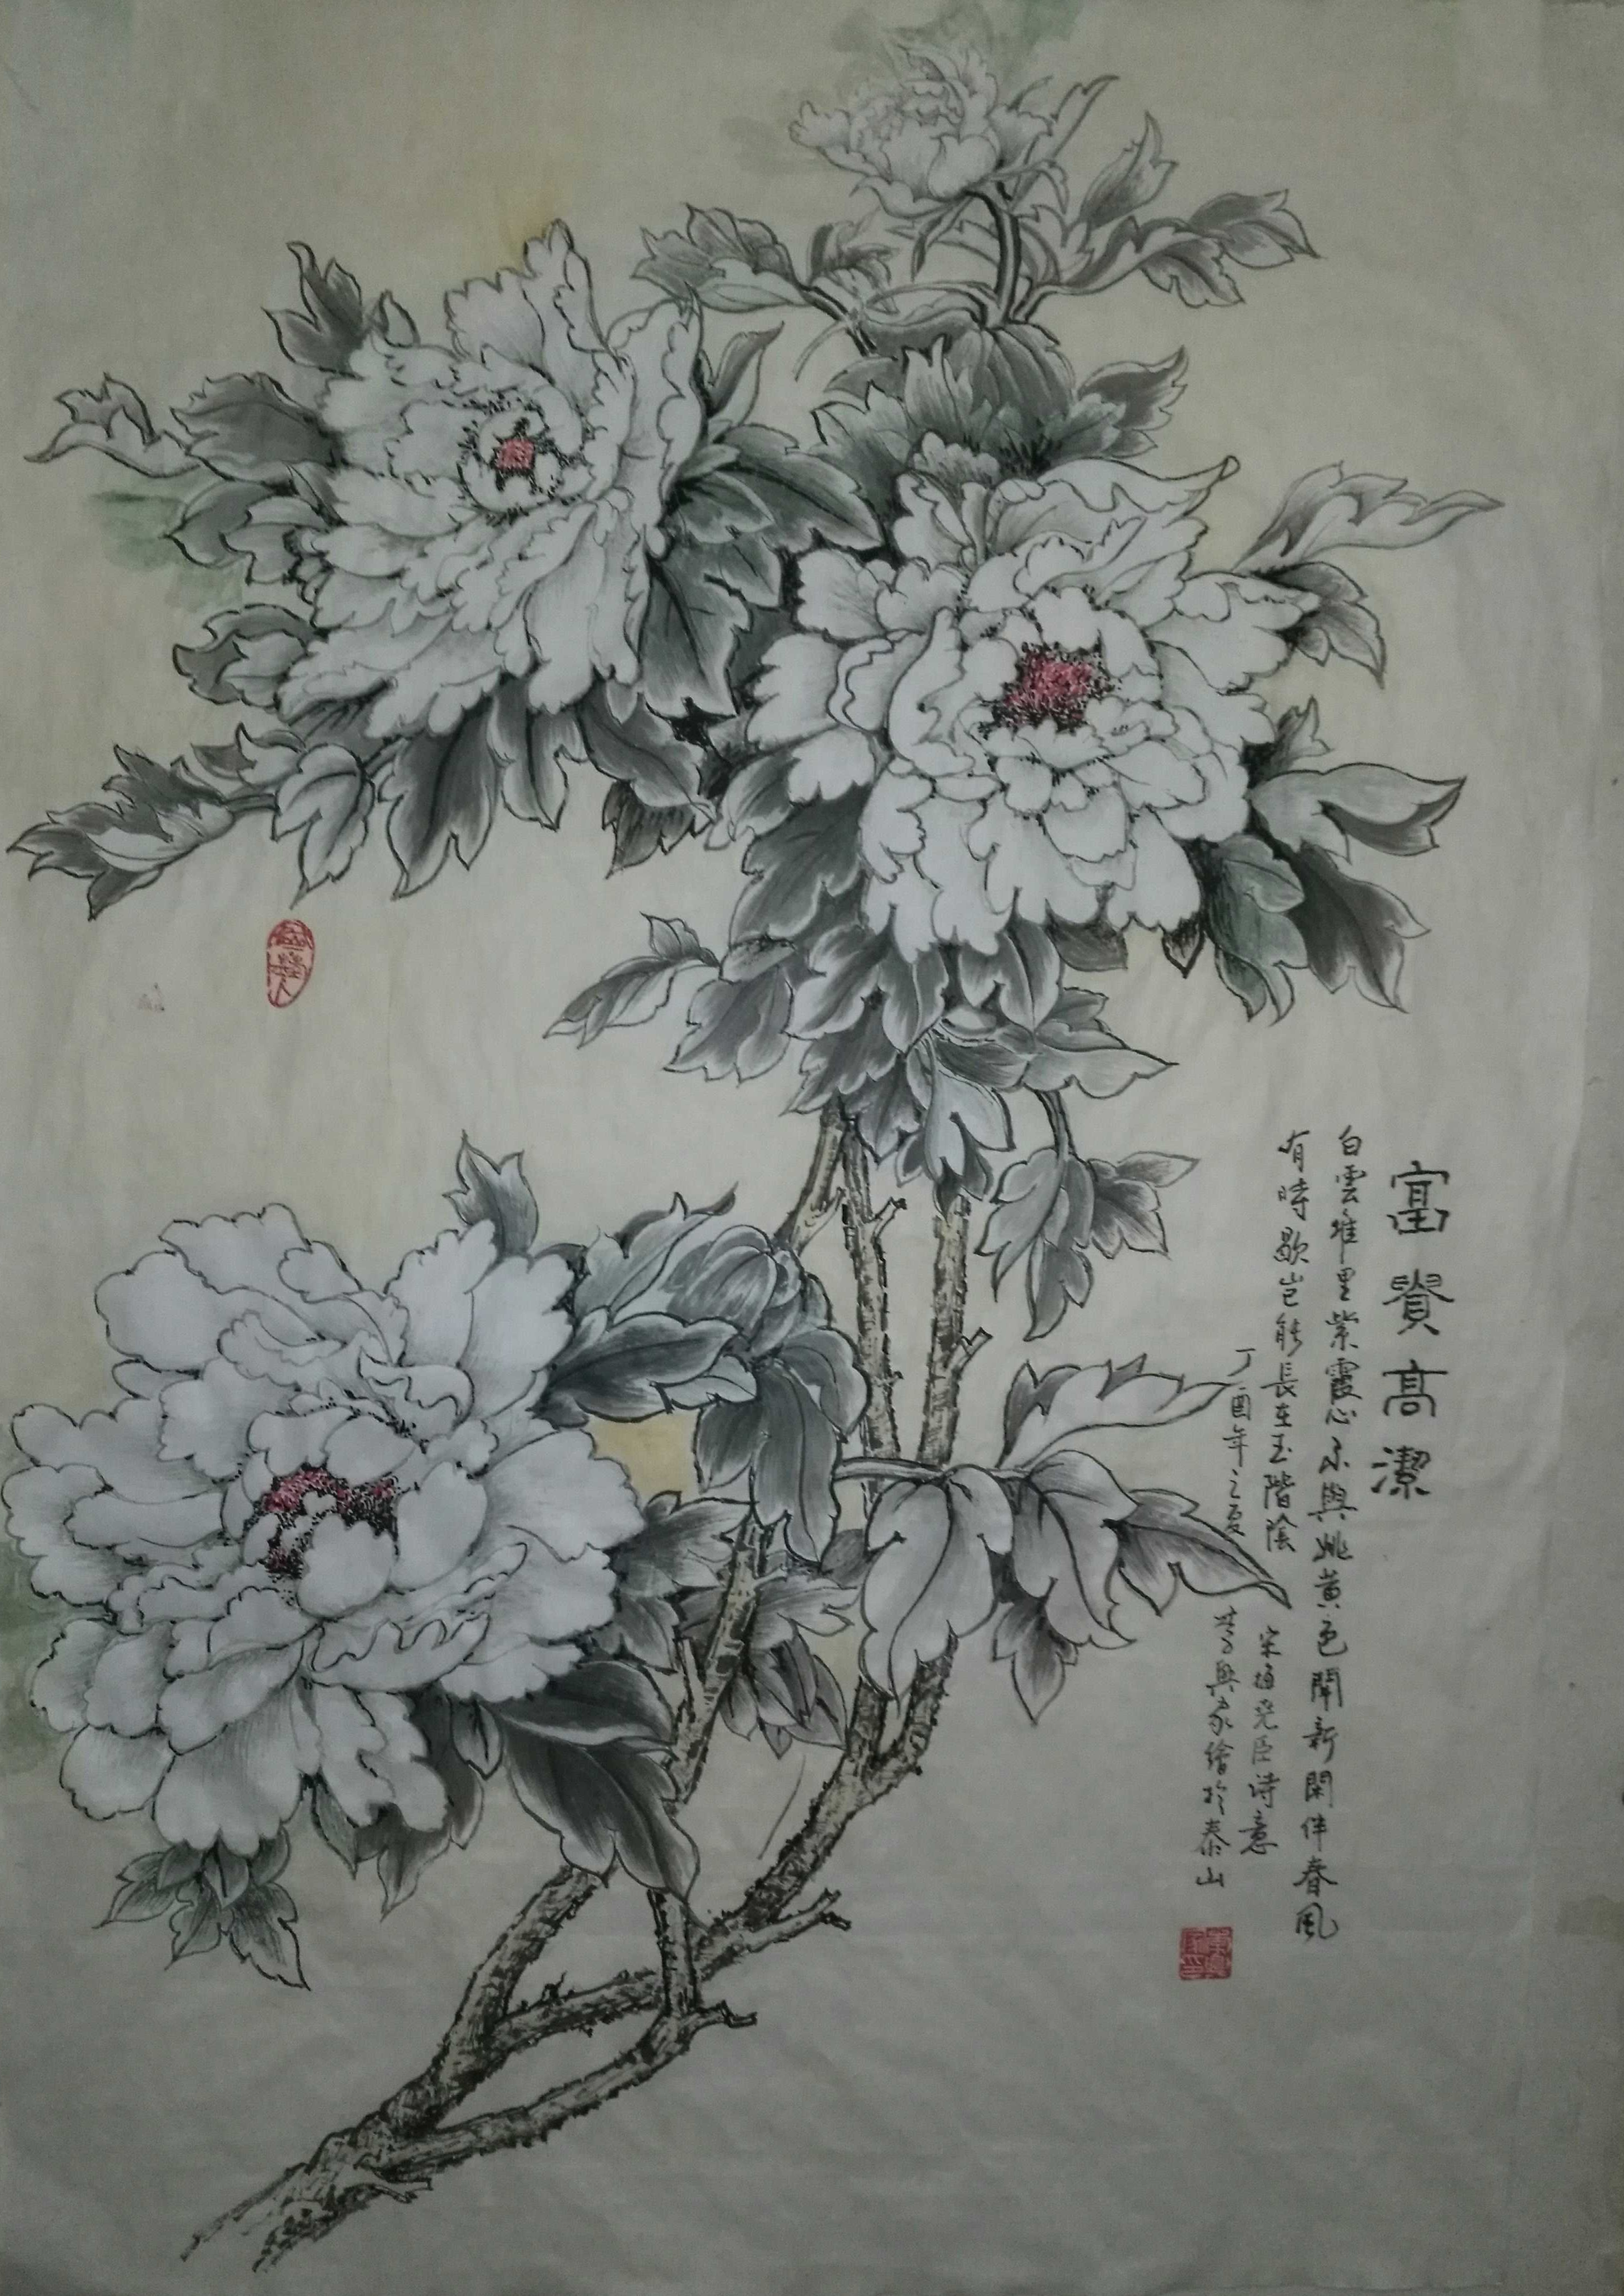 富貴高潔
白雲堆里紫霞心不與姚黃色鬪新閑伴春風
有時歇豈能長在玉階陰
宋梅堯臣诗意
丁酉年之夏
興家繪於泰山